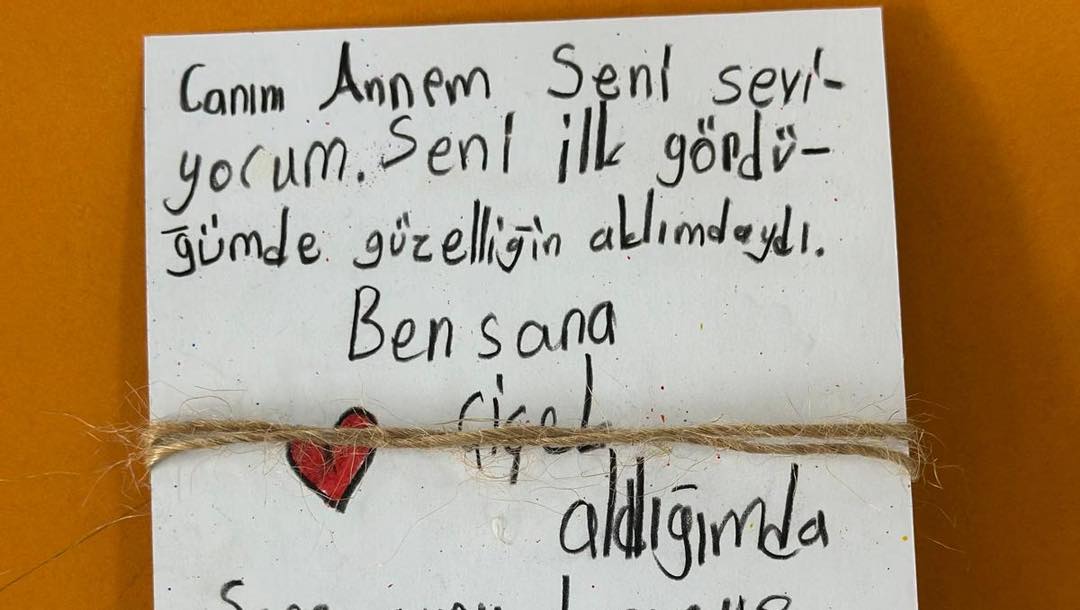 Canım Annem Seni sevi-
yorum. Seni ilk gördü-
ğümde güzelliğin aklımdaydı.
Ben sana
çiçek
aldığımda